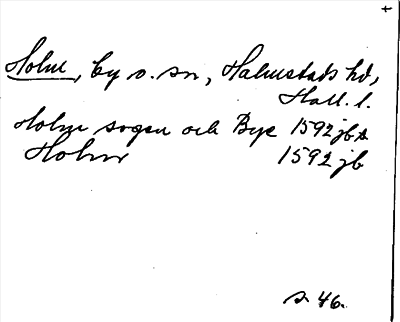 Holm, by o. sn, Halmstads hd,
Hall. l.
Holm sogen och Bye 1592 jb s.
Holm 1592 jb
s. 46.